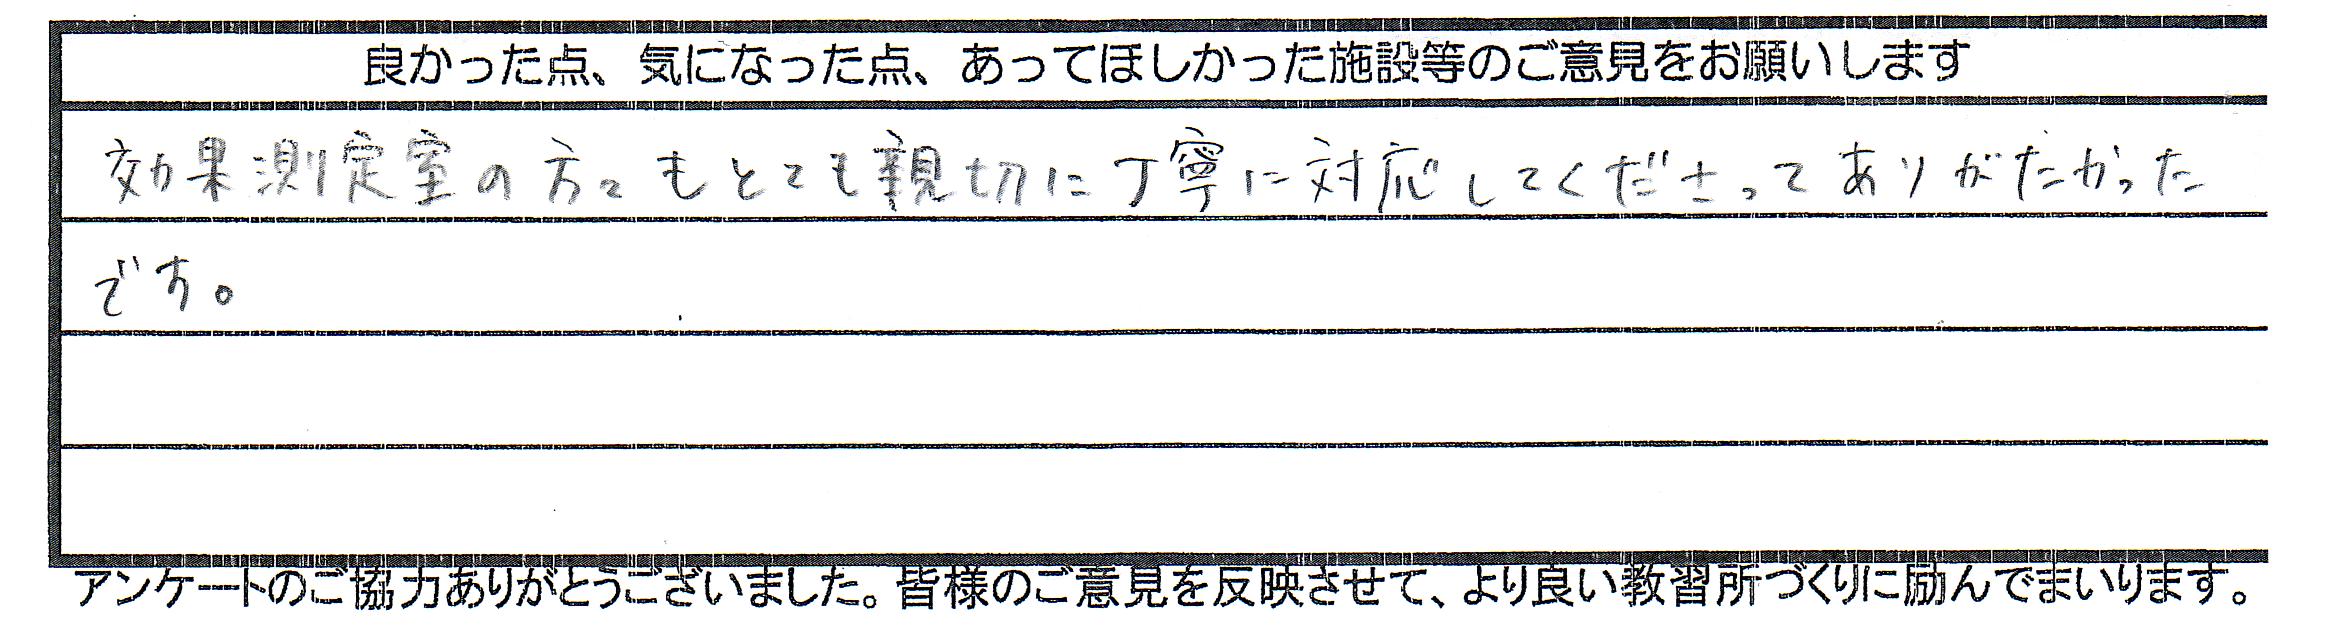 良かった点、気になった点、あってほしかった施設等のご意見をお願いします
効果測定室の方々もとても親切に丁寧に対応してくださってありがたかった
です。
アンケートのご協力ありがとうございました。皆様のご意見を反映させて、より良い教習所づくりに励んでまいります。